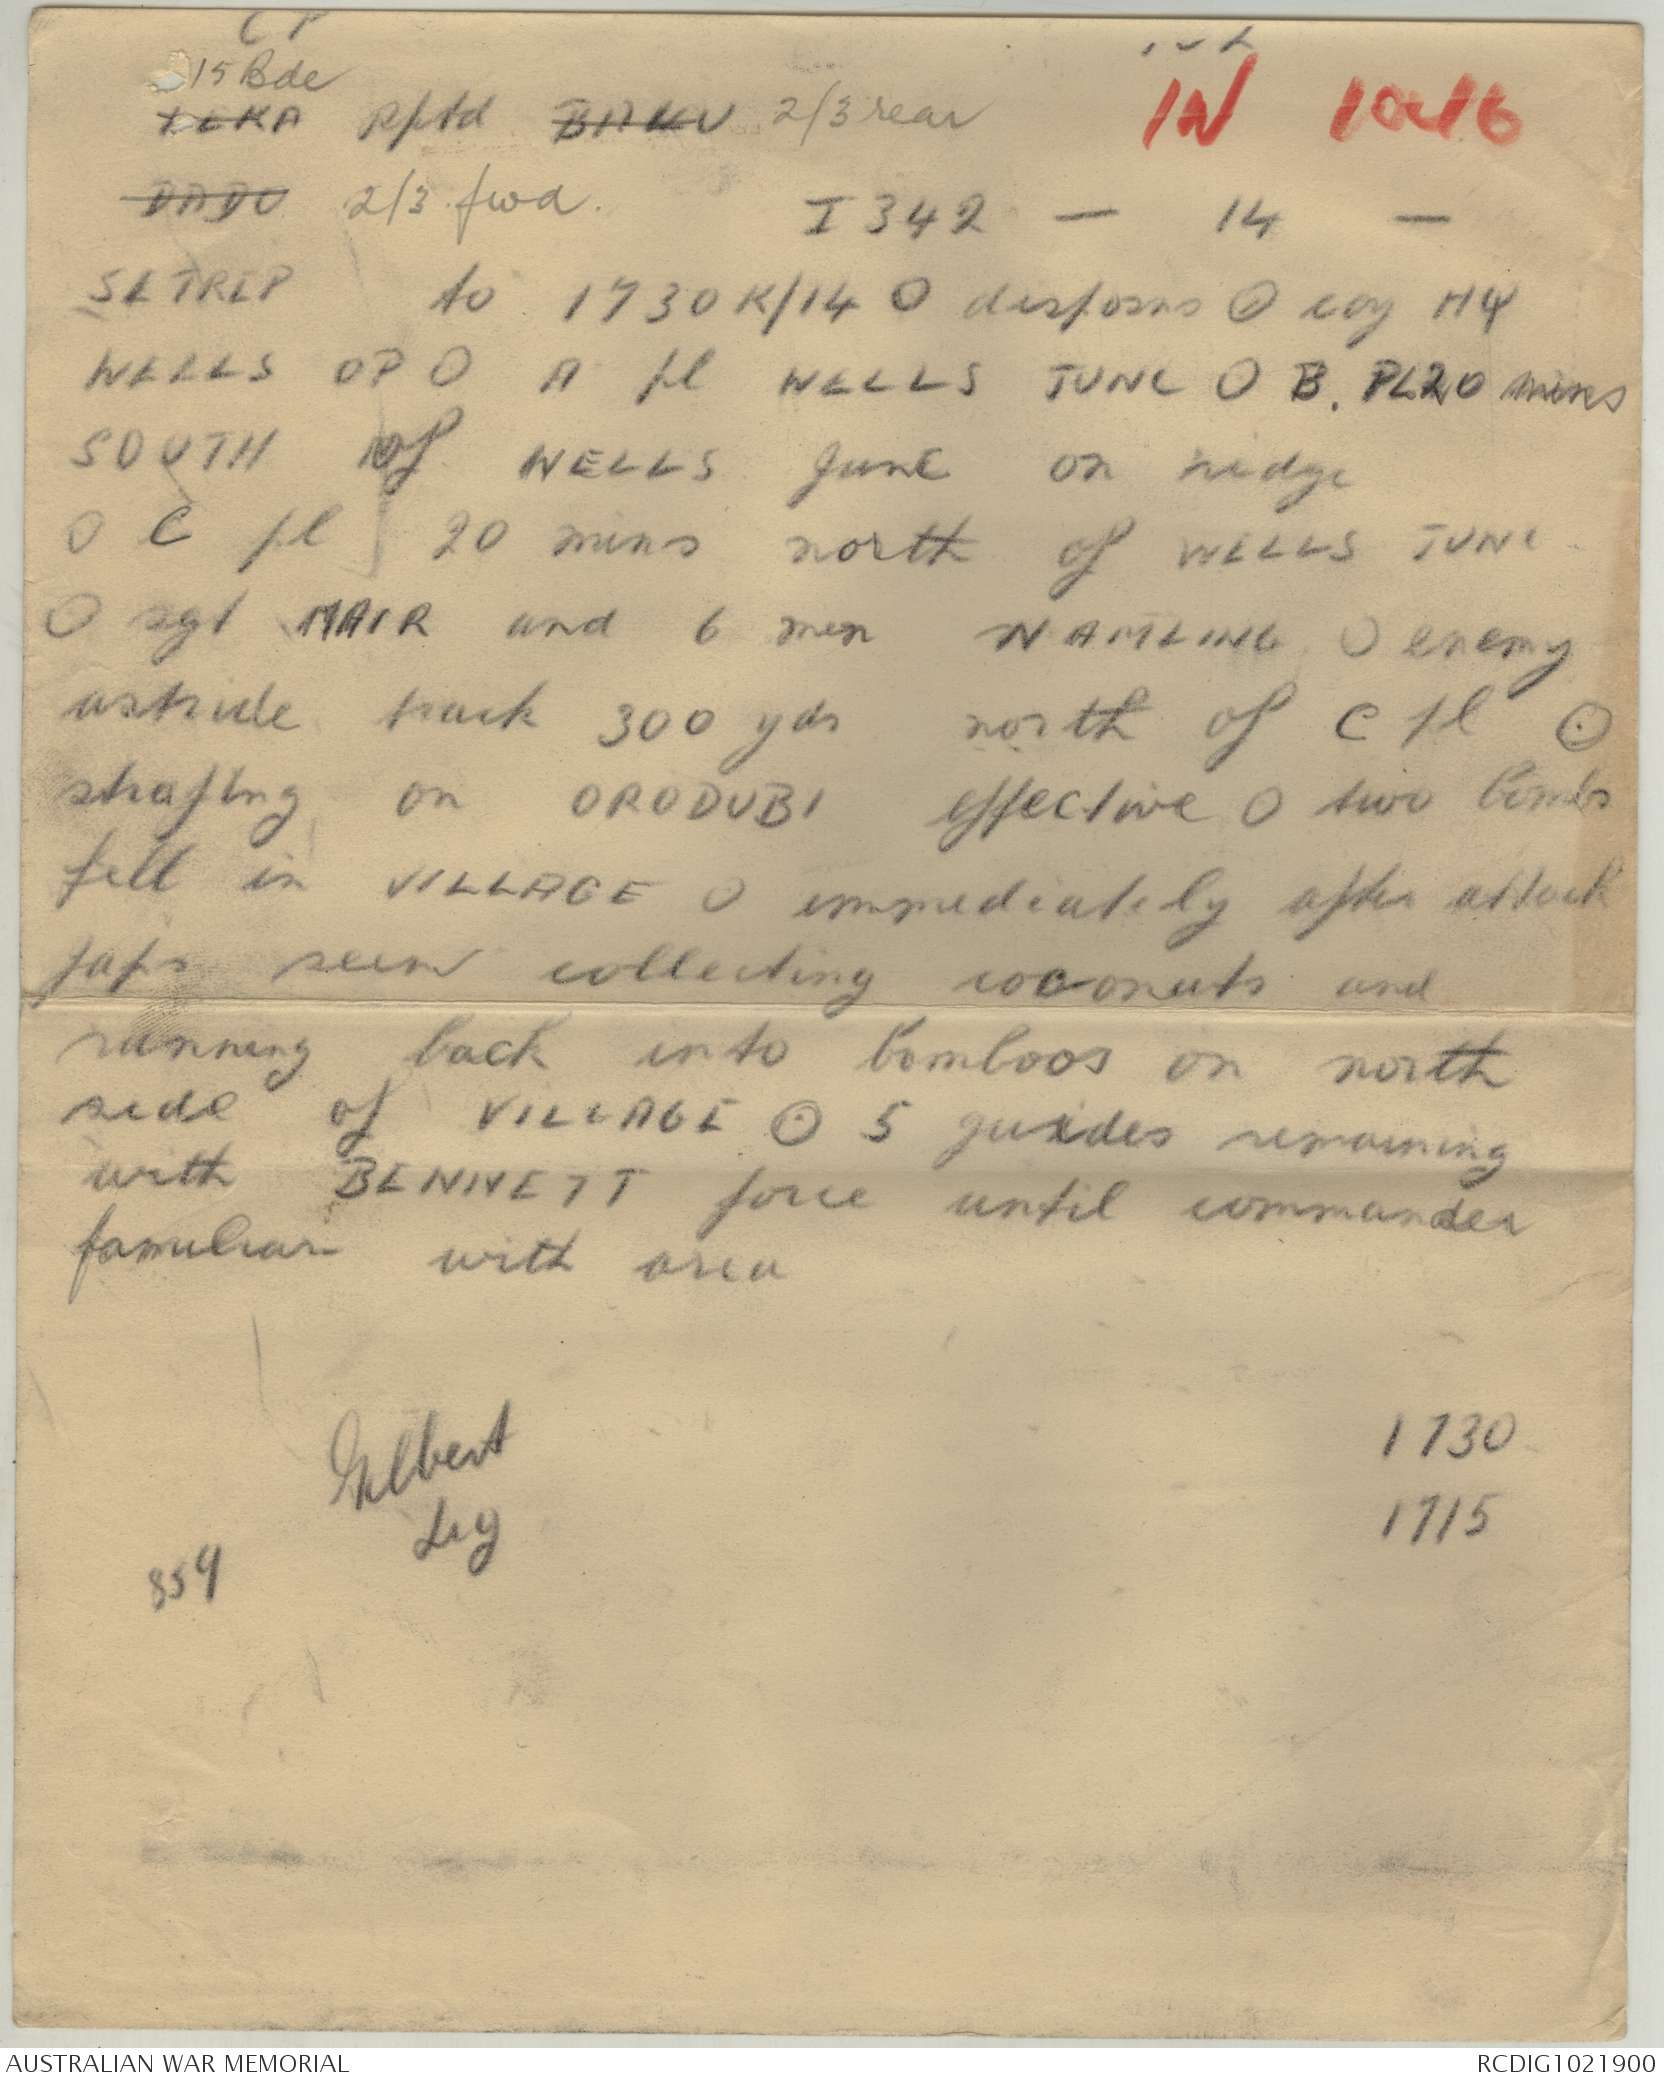 15 Bde
rptd BAKU 2/3 rear IN 1016
DADU 2/3 fwd. I 342 — 14 —
SITREP to 1730K/14 O disposns O coy HQ
WELLS OP O A pl WELLS JUNC O B. PL 20 mins
SOUTH of WELLS junc on ridge
O C pl 20 mins north of WELLS JUNC
O sgt MAIR and 6 men NAMLING O enemy
astride track 300 yds north of C pl ⊙
strafing on ORODUBI effective O two bombs
fell in VILLAGE O immediately after attack
japs seen collecting coconuts and
running back into bomboos on north
side of VILLAGE ⊙ 5 guides remaining
with BENNETT force until commander
familiar with area
Gilbert 1730
1715
859
AUSTRALIAN WAR MEMORIAL RCDIG1021900